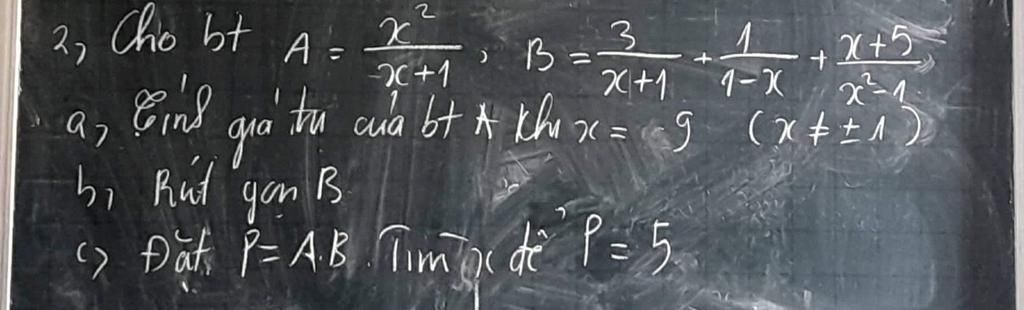 2, Cho bt A = x²/(x+1), B = 3/(x+1) + 1/(1-x) + (x+5)/(x²-1)
a, Tính giá trị của bt A khi x = 9 (x ≠ ±1)
b, Rút gọn B
c) Đặt P = A.B. Tìm x để P = 5